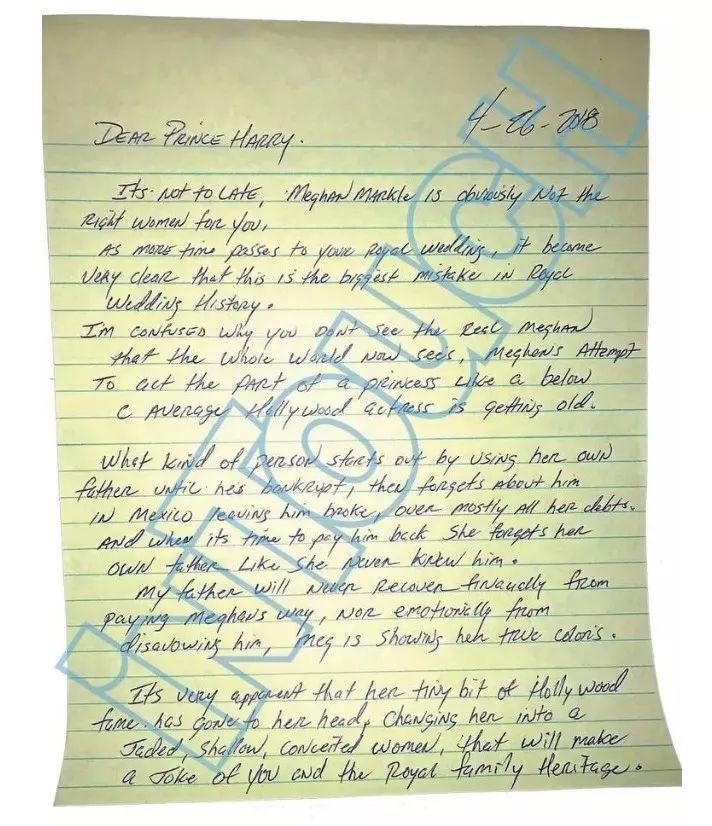 4-26-2018
DEAR PRINCE HARRY.
ITS NOT TO LATE, MEGHAN MARKLE IS obviously Not the
Right women for you,
AS MORE time passes to your Royal wedding, it became
very clear that this is the biggest mistake in Royal
Wedding History.
IM CONFUSED why you DONT See the Real Meghan
that the whole world Now sees, Meghan's Attempt
TO act the PART of a princess Like a below
C AVERAGE Hollywood actress is getting old.
What kind of person starts out by using her own
father until he's bankrupt, then forgets About him
IN Mexico leaving him broke, over mostly all her debts.
AND when its time to pay him back She forgets her
OWN father Like She Never Knew him.
My father will Never Recover finacially from
paying Meghans way, NOR emotionally from
disavowing him, Meg is Showing her true colors.
Its very apparent that her tiny bit of Hollywood
fame has gone to her head, Changing her into a
Jaded, Shallow, conceited women, that will make
a Joke of you and the Royal family Heritage.
InTouch